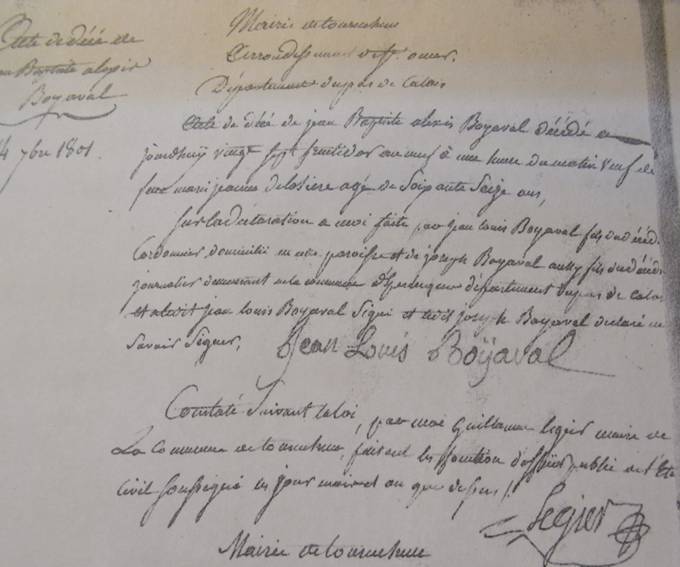 Acte de décé de
Jean Baptiste alexis
Boyaval
14 7bre 1801.
Mairie de tournehem
Arrondissement de St. omer.
Département du pas de Calais
Acte de décé de jean Baptiste alexis Boyaval décédé a
jourdhuy vingt sept fructidor an neuf à une heure du matin veuf de
feue marie jeanne delosiere agé de Soixante Seize ans,
Sur la déclaration a moi faite par jean louis Boyaval fils du décédé
Cordonnier domicilié en cette paroisse et de joseph Boyaval aussy fils du décédé
journalier demeurant en la commune département du pas de calais
et a ledit jean louis Boyaval Signé et ledit joseph Boyaval declaré ne
Savoir Signer,
Jean Louis Boÿaval
Constaté Suivant la loi, par moi Guillaume legier maire de
La Commune de tournehem, faisant les fonction d'officier public de l'Etat
Civil Soussigné les jour mois et an que dessus.
Legier
Mairie de tournehem